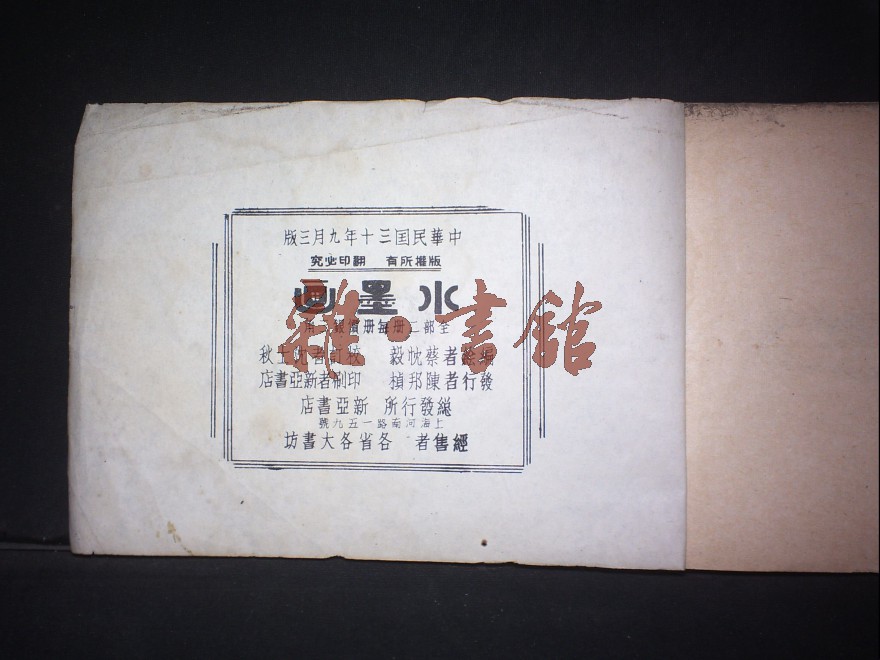 中華民囯三十年九月三版
版權所有 翻印必究
水墨画
全部二册每册 角
編繪者蔡忱毅 校訂者沈士秋
發行者陳邦楨 印刷者新亞書店
總發行所 新亞書店
上海河南路一五九號
經售者 各省各大書坊
雜·書館